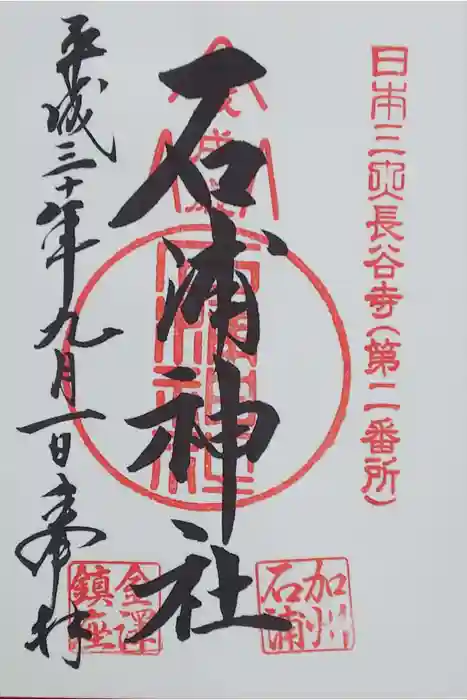 日本三炎長谷寺(第二番所)
石浦神社
平成三十年九月一日奉拝
加州
石浦
金澤
鎮座